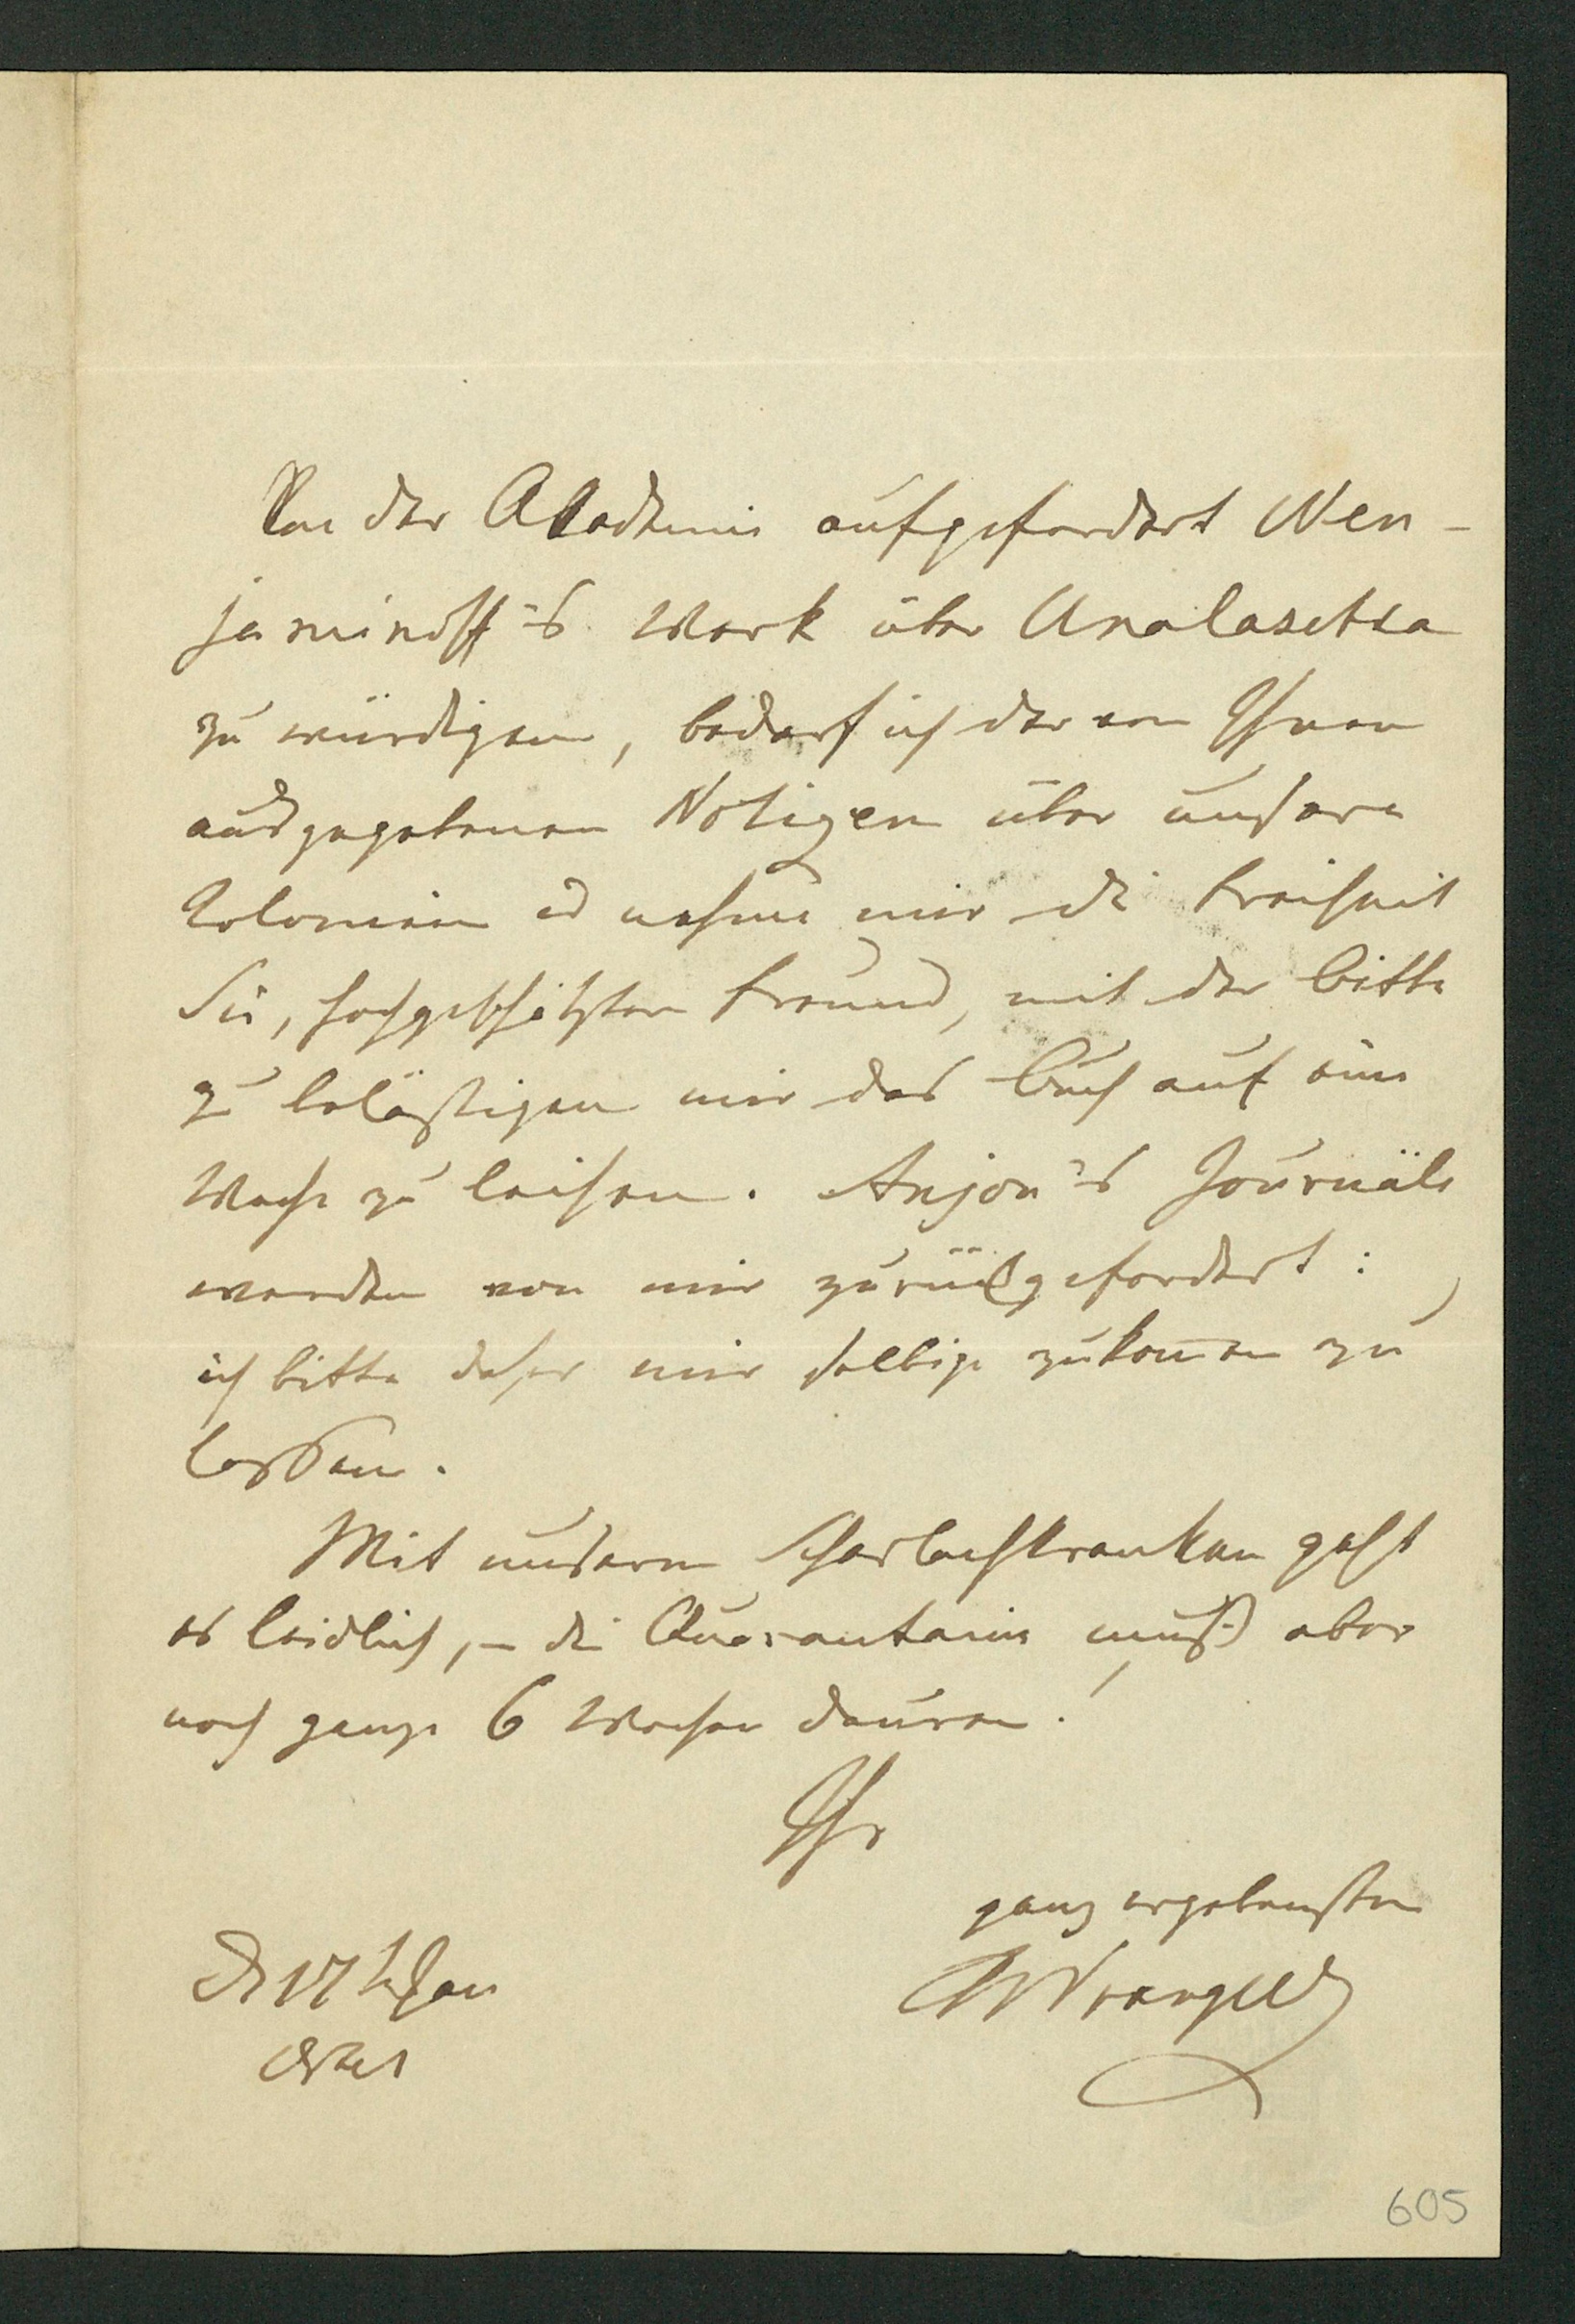 Von der Akademie aufgefordert Wen-
jaminoff's Werk über Unalaschka
zu würdigen, bedarf ich der von Ihnen
ausgegebenen Notizen über unsere
Colonien und nehme mir die Freiheit
Sie, hochgeschätzter Freund, mit der Bitte
zu belästigen mir das Buch auf eine
Woche zu leihen. Anjou's Journäle
werden von mir zurückgefordert:
ich bitte daher mir selbige zukommen zu
lassen.
Mit unserm Scharlachkranken geht
es leidlich, – die Quarantaine muß aber
noch ganze 6 Wochen dauren!
Ihr
ganz ergebenster
Wrangell
17
605